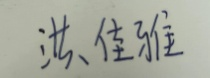 洪佳雅